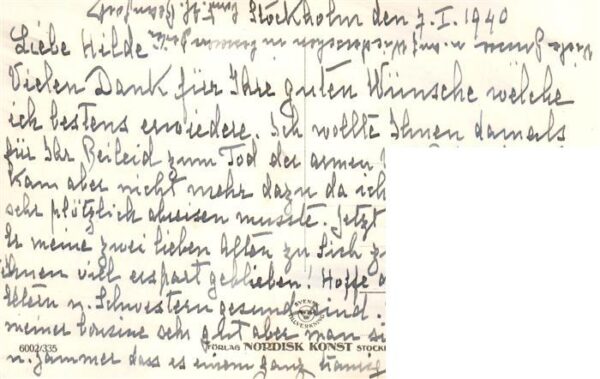 Stockholm den 7.I.1940
Liebe Hilde
Vielen Dank für Ihre guten Wünsche welche
ich bestens erwiedere. Ich wollte Ihnen damals
für Ihr Beileid zum Tod der armen
kam aber nicht mehr dazu da ich
sehr plötzlich abreisen musste. Jetzt
Er meine zwei lieben Alten zu Sich
ihnen viel erspart geblieben! Hoffe
Eltern u. Schwestern gesund sind.
meiner Cousine sehr gut aber man
SVENSK TILLVERKNING
6002/335 FÖRLAG NORDISK KONST STOCK
u. Jammer dass es einem ganz traurig